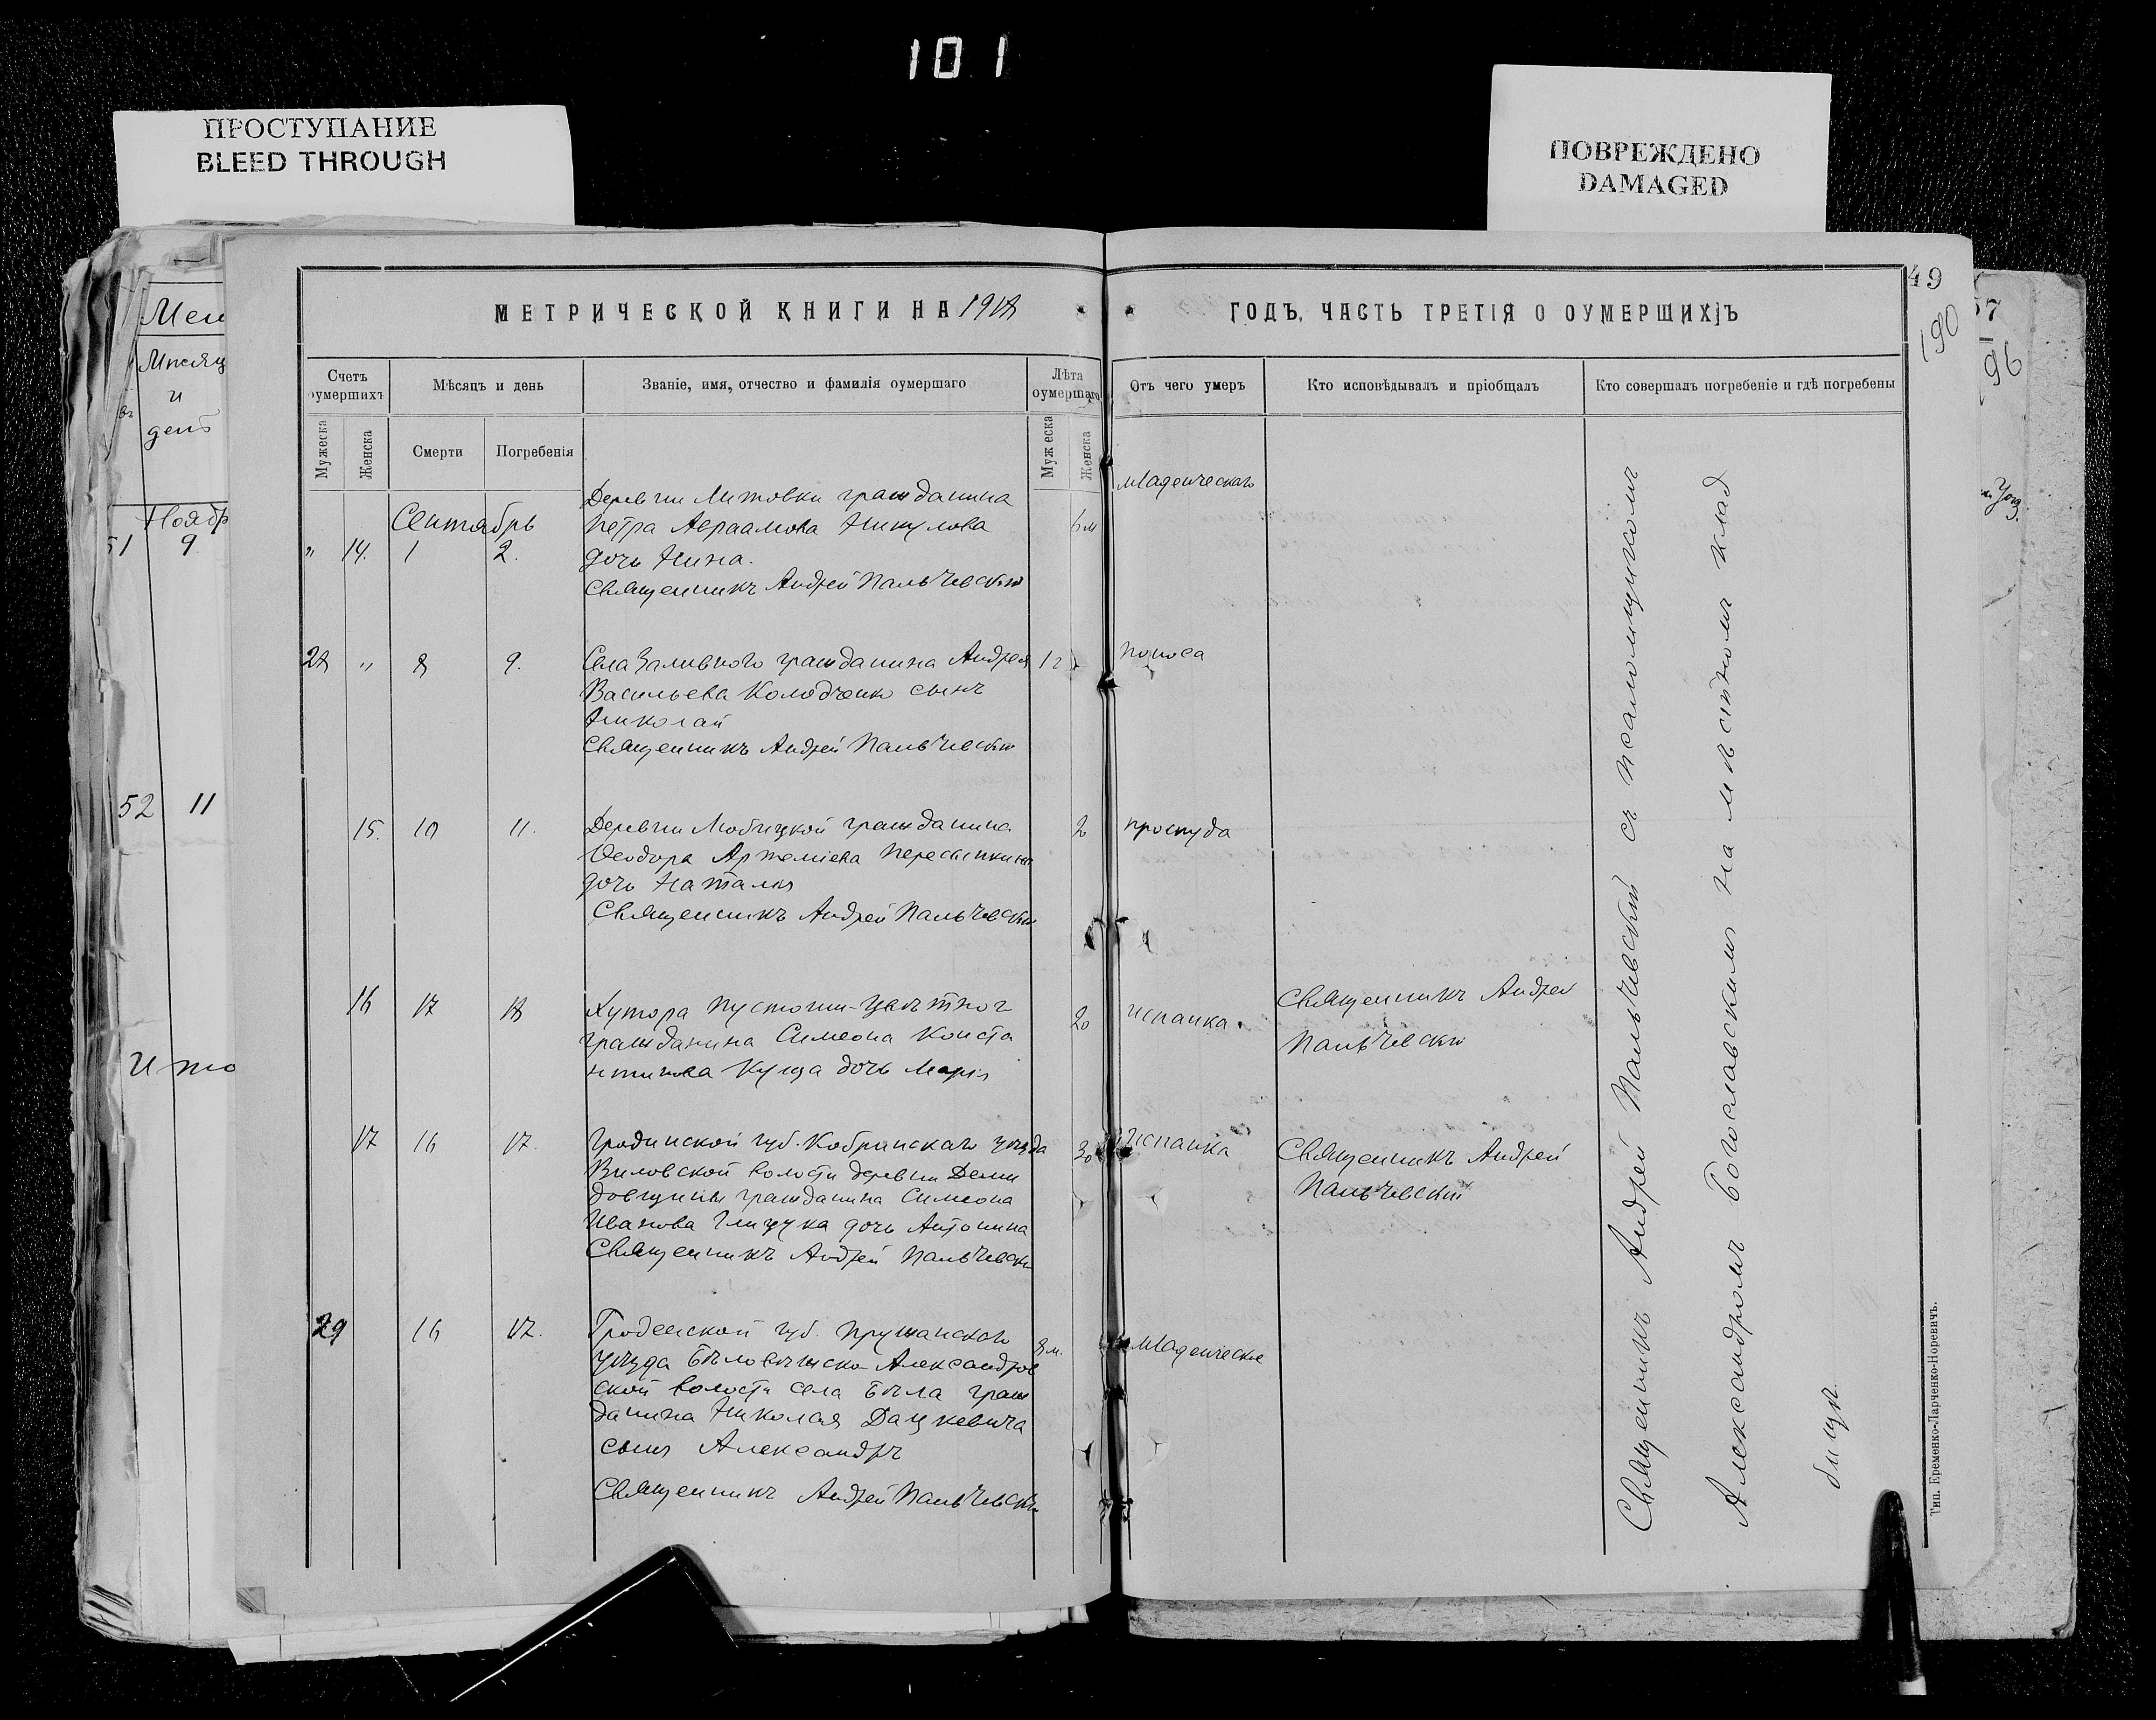 101
ПРОСТУПАНИЕ
BLEED THROUGH
ПОВРЕЖДЕНО
DAMAGED
49
190
57
96
Мѣсяц
и
день
Ноябр
51 9
52 11
Ито
МЕТРИЧЕСКОЙ КНИГИ НА 1918
ГОДЪ, ЧАСТЬ ТРЕТІЯ О ОУМЕРШИХЪ
Счетъ оумершихъ
Мѣсяцъ и день
Званіе, имя, отчество и фамилія оумершаго
Лѣта оумершаго
Отъ чего умеръ
Кто исповѣдывалъ и пріобщалъ
Кто совершалъ погребеніе и гдѣ погребены
Мужеска
Женска
Смерти
Погребенія
Мужеска
Женска
Сентябрь
" 14. 1 2.
Деревни Литовки гражданина
Петра Авраамова Никулова
дочь Нина.
Священникъ Андрей Пальчевскій
6 м
младенческаго
28 " 8 9.
Села Заливного гражданина Андрея
Васильева Колодченко сынъ
Николай
Священникъ Андрей Пальчевскій
1 г
поноса
15. 10 11.
Деревни гражданина
Ѳеодора Артеміева
дочь Наталія
Священникъ Андрей Пальчевскій
2
простуда
16 17 18
Хутора Пустоши-
гражданина Симеона Конста
нтинова Куща дочь Марія
20
испанка.
Священникъ Андрей
Пальчевскій
17 16 17.
Гродненской губ. Кобринскаго уѣзда
волости деревни Деми
довщины гражданина Симеона
Иванова дочь Антонина
Священникъ Андрей Пальчевскій
30
Испанка
Священникъ Андрей
Пальчевскій
29 16 17.
Гродненской губ. Пружанскаго
уѣзда Бѣловѣжско-Александров
ской волости села Бѣла граж
данина Николая Дацкевича
сынъ Александръ
Священникъ Андрей Пальчевскій
8 м.
Младенческое
Священникъ Андрей Пальчевскій съ псаломщикомъ
Александромъ Богославскимъ на мѣстномъ клад
бищѣ.
Тип. Еременко-Ларченко-Норевичъ.